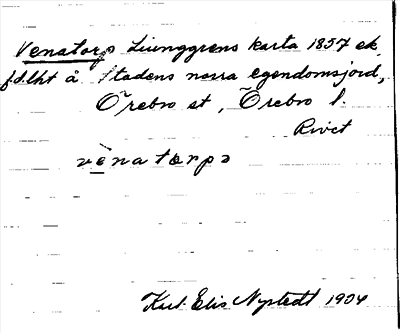 Venatorp Liunggrens karta 1857 ek.
f.d. lht å Stadens norra egendomsjord,
Örebro st, Örebro l.
Rivet
vènatorpə
Kul. Elis Nystedt 1904